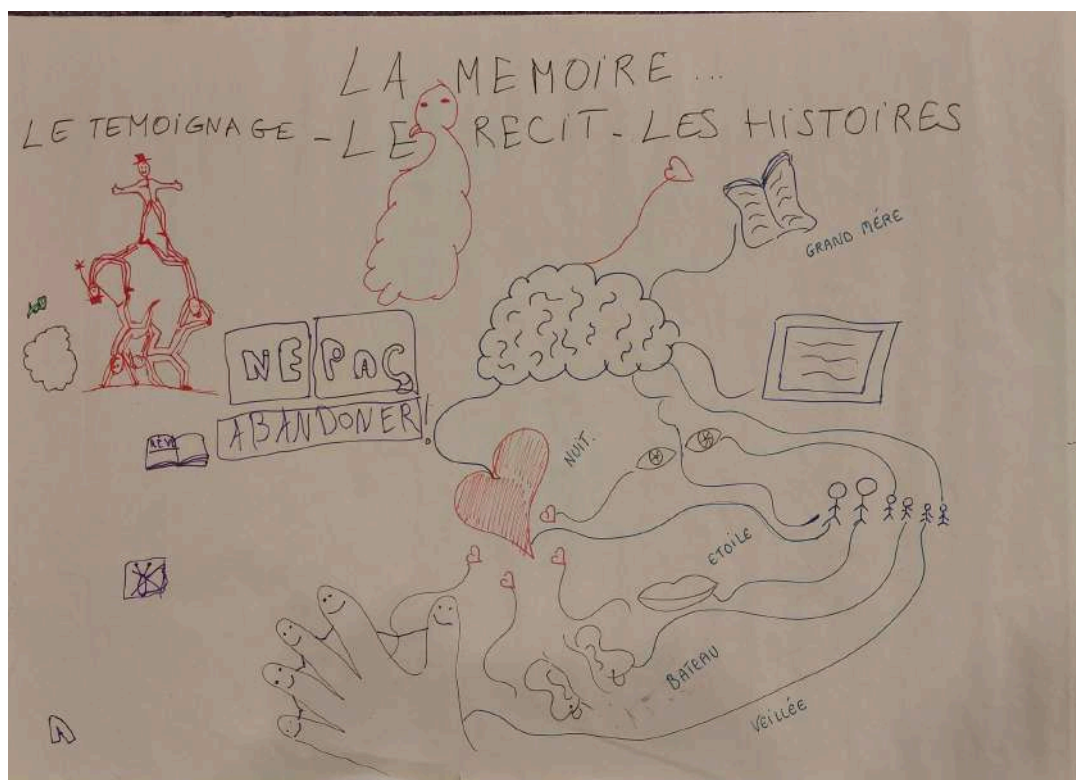 LA MEMOIRE...
LE TEMOIGNAGE - LE RECIT - LES HISTOIRES
GRAND MÉRE
NE PAS
ABANDONER!
REVE
NUIT.
ETOILE
BATEAU
VEILLÉE
A